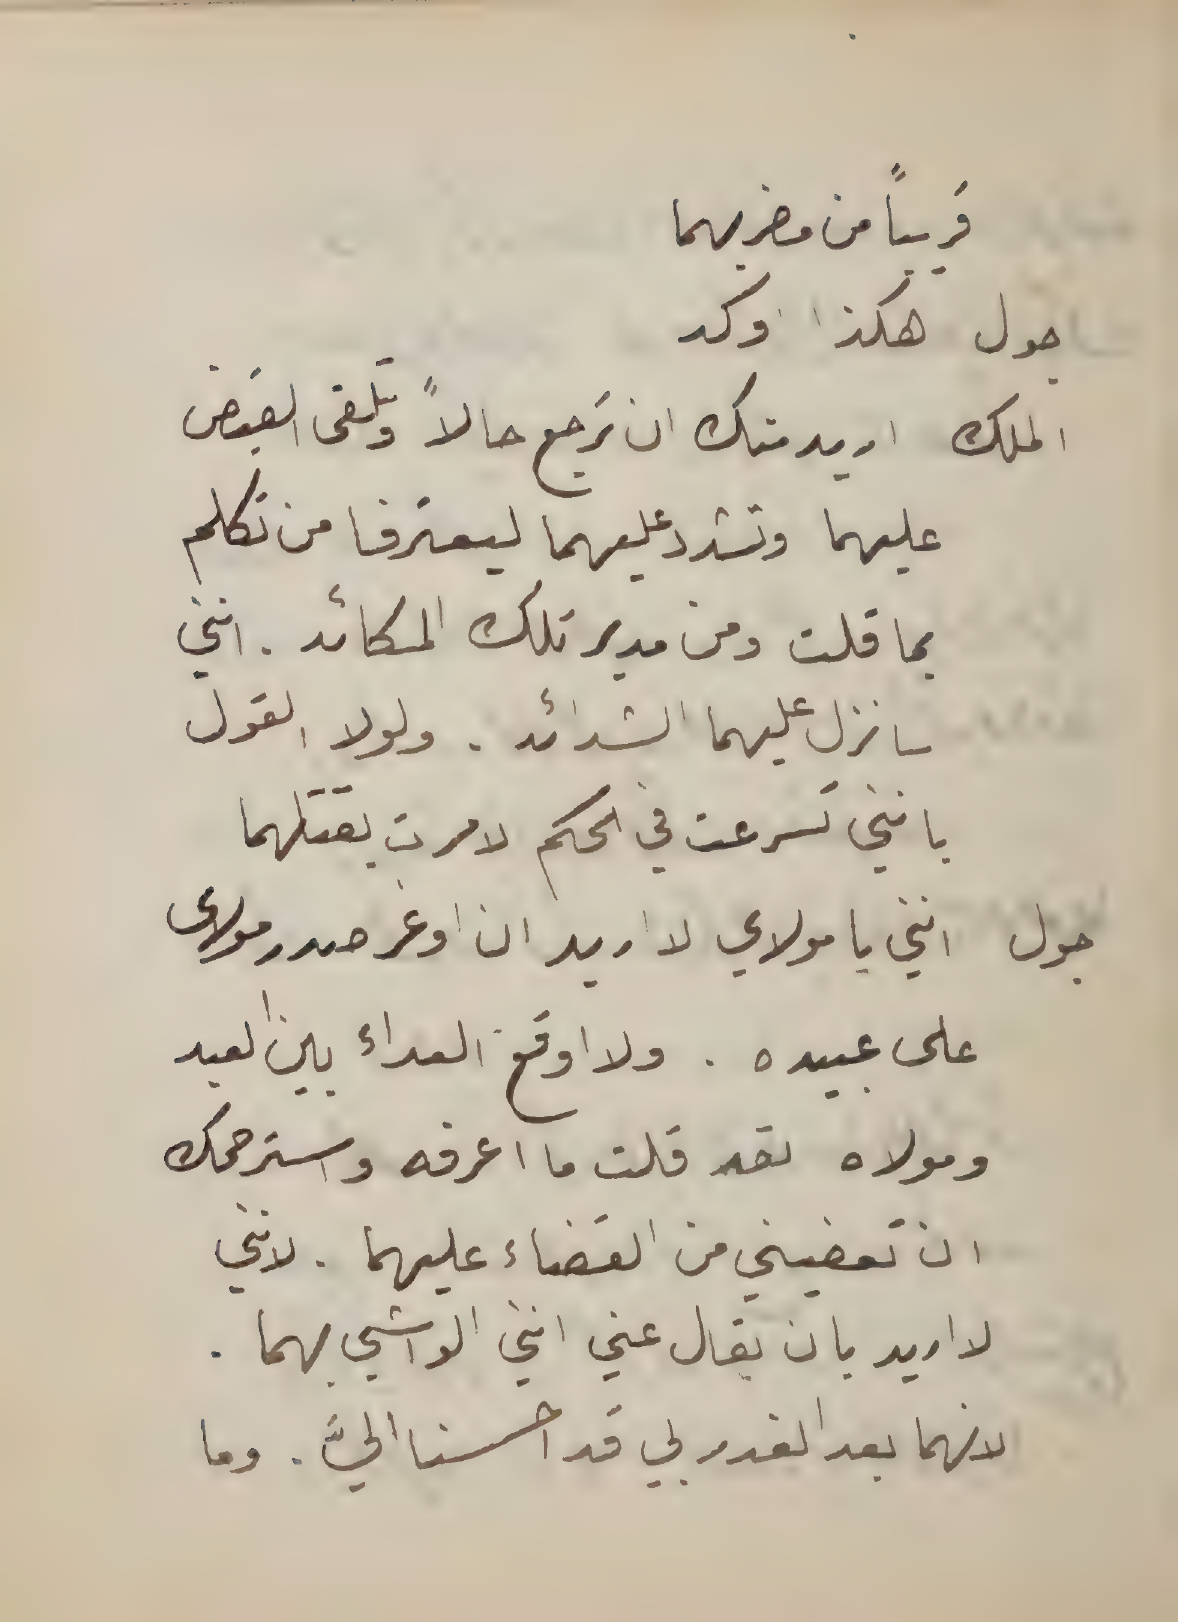 قريباً من مضربهما
جول هكذا اوكد
الملك اريد منك ان ترجع حالاً وتلقى القبض
عليهما وتشدد عليهما ليعترفا من تكلم
بما قلت ومن مدبر تلك المكائد . انني
سانزل عليهما الشدائد . ولولا القول
بانني تسرعت في الحكم لامرت بقتلهما
جول انني يا مولاي لا اريد ان اوغر صدر مولاى
على عبيده . ولا اوقع العداء بين العبد
ومولاه لقد قلت ما اعرفه واسترحمك
ان تعفيني من القضاء عليهما . لانني
لا اريد بان يقال عني انني الواشي بهما .
لانهما بعد الغدر بي قد احسنا اليَّ . وما